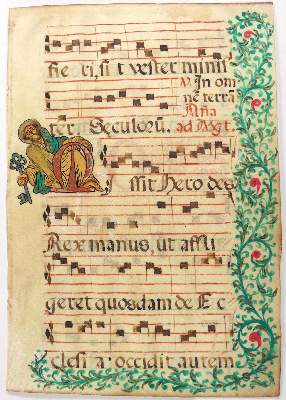 fieri, sit vester minis
℣. In om
nē terrā
ter. Seculorū. ad Mgt.
M
isit Hero des
Rex manus, ut affli
geret quosdam de Ec
clesi a: occidit autem